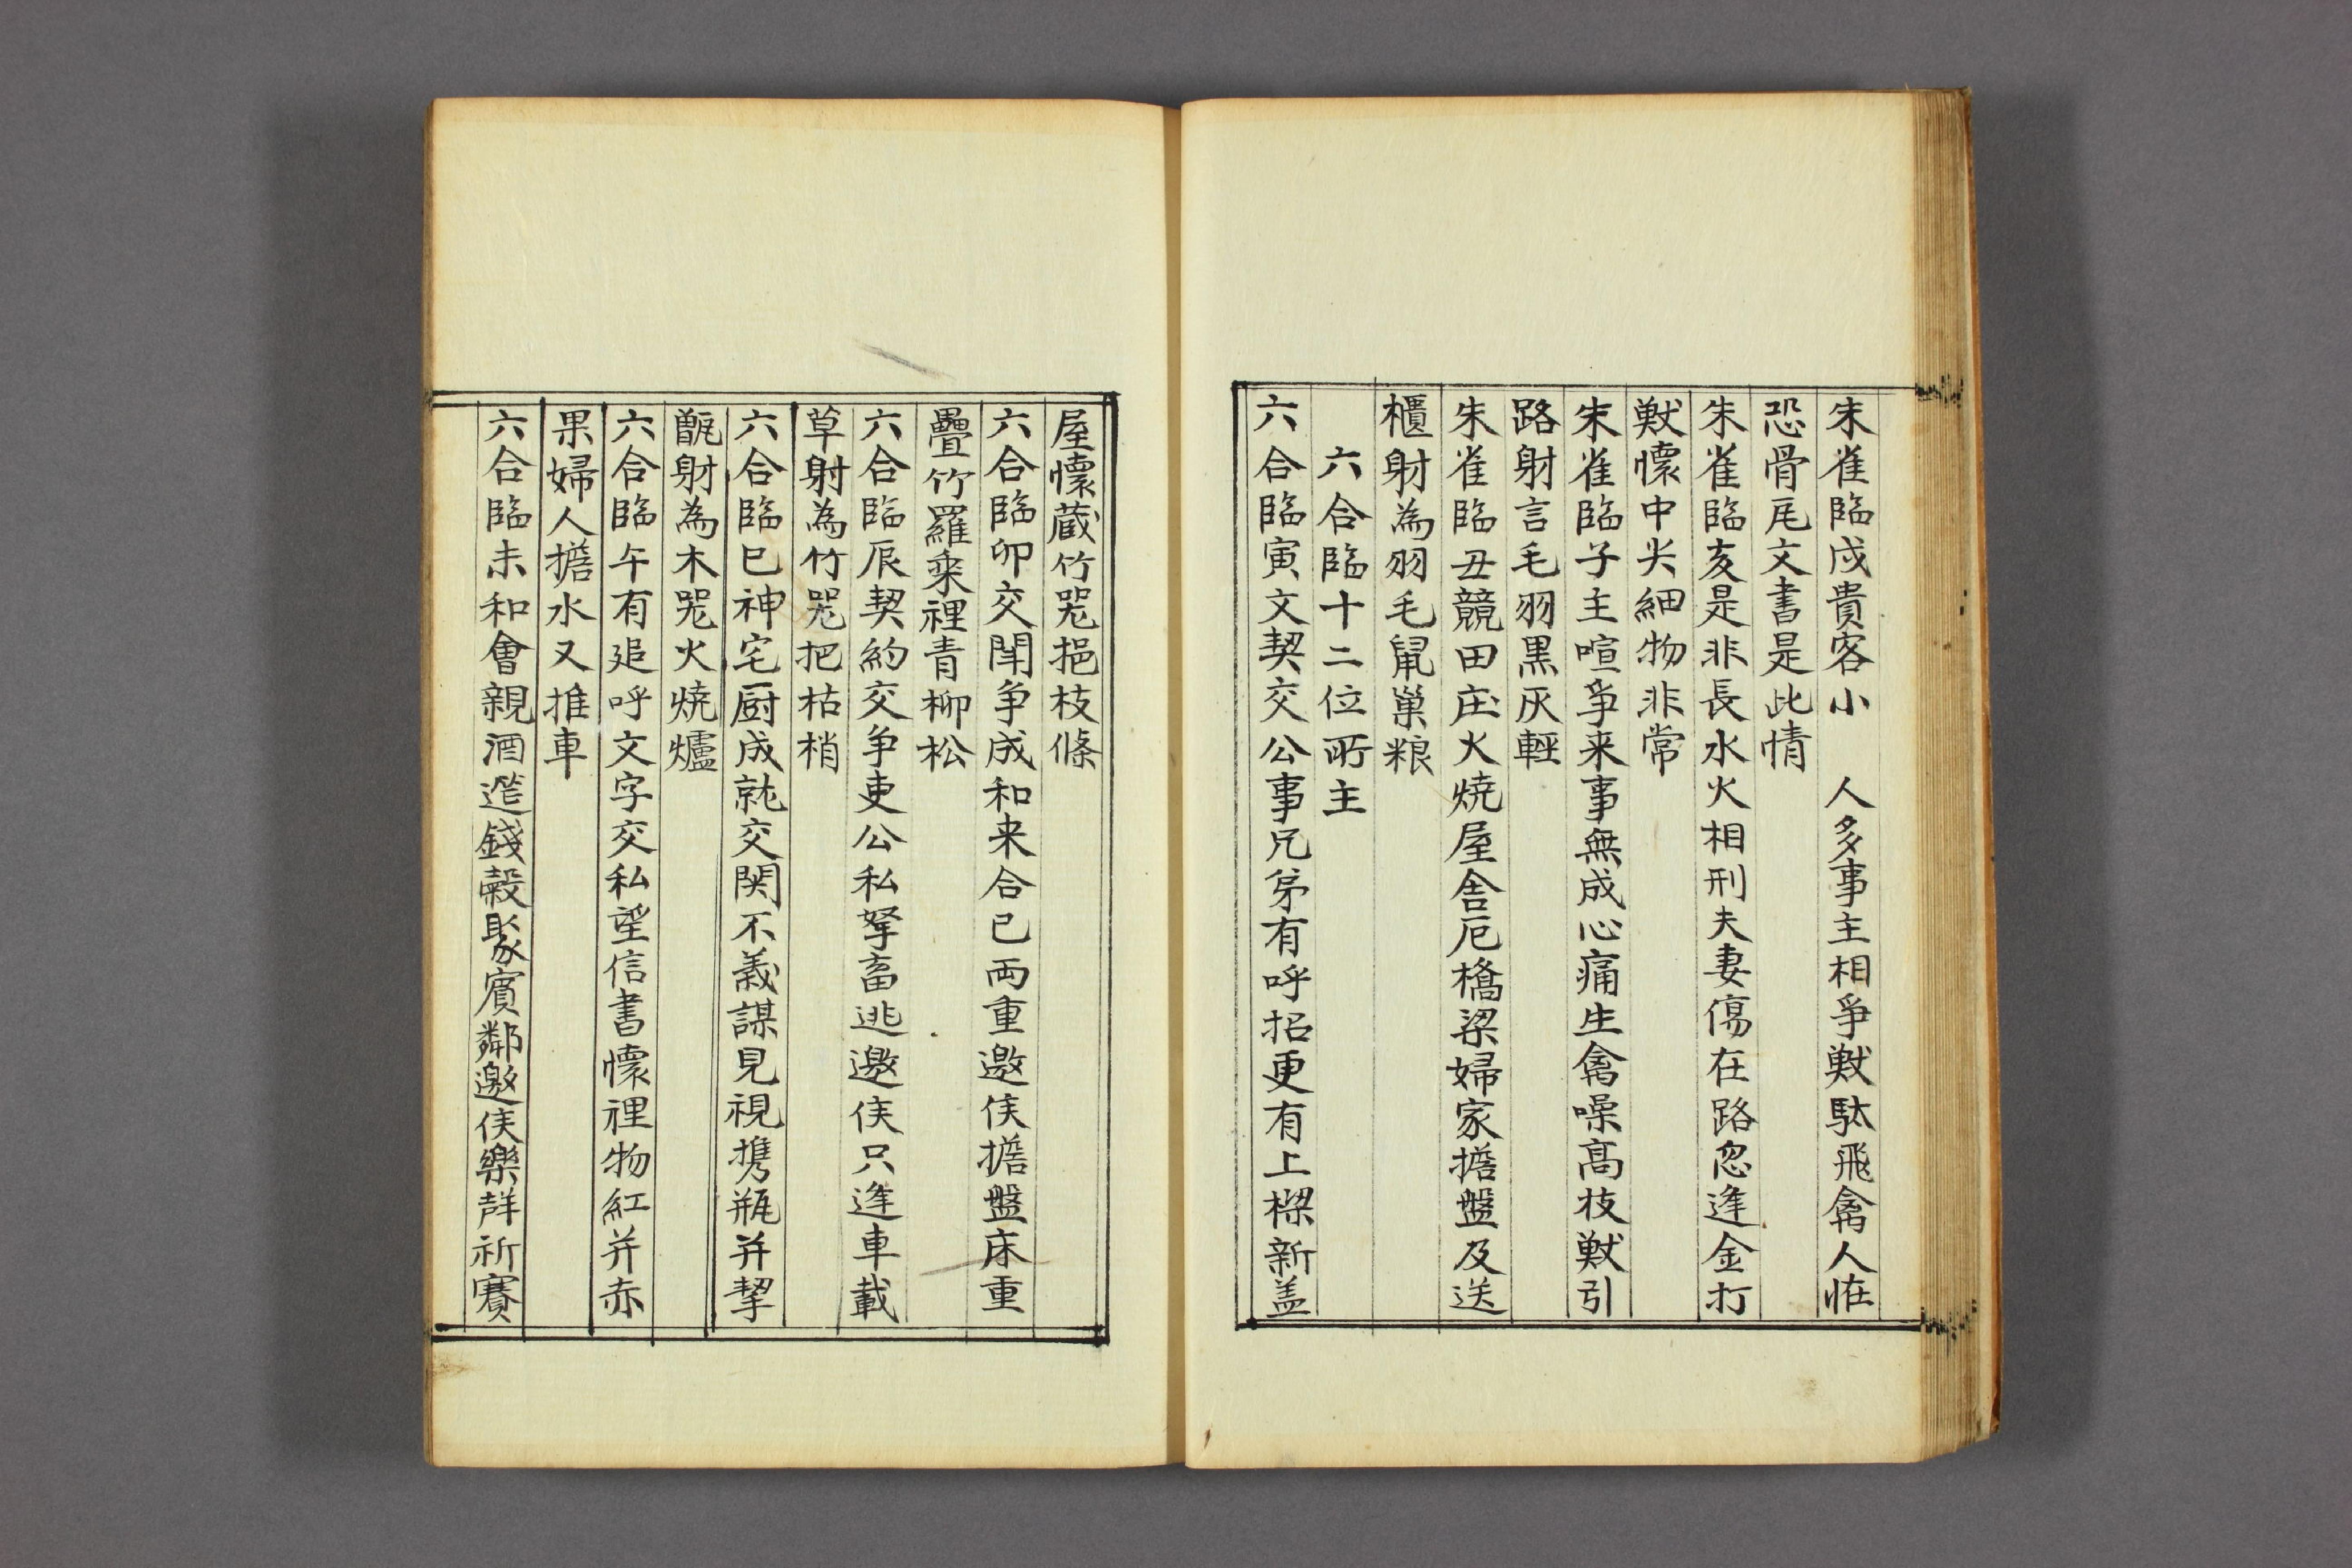 朱雀臨戌貴客小　人多事主相爭獣馱飛禽人恠
恐骨尾文書是此情
朱雀臨亥是非長水火相刑夫妻傷在路忽逢金打
獣懷中尖細物非常
朱雀臨子主喧爭来事無成心痛生禽噪髙枝獣引
路射言毛羽黒灰輕
朱雀臨丑競田庄火焼屋舎厄橋梁婦家擔盤及送
櫃射為羽毛鼠巢粮
六合臨十二位所主
六合臨寅文契交公事兄弟有呼招更有上樑新盖
屋懷蔵竹噐挹枝條
六合臨卯交関争成和来合已両重邀侯擔盤床重
疊竹羅乗裡青柳松
六合臨辰契約交争吏公私孥畜逃邀侯只逢車載
草射為竹噐把枯梢
六合臨巳神宅厨成就交関不義謀見視携瓶并挈
甑射為木噐火焼爐
六合臨午有追呼文字交私望信書懷裡物紅并赤
果婦人擔水又推車
六合臨未和會親酒筵錢穀聚賔鄰邀侯樂羣祈賽